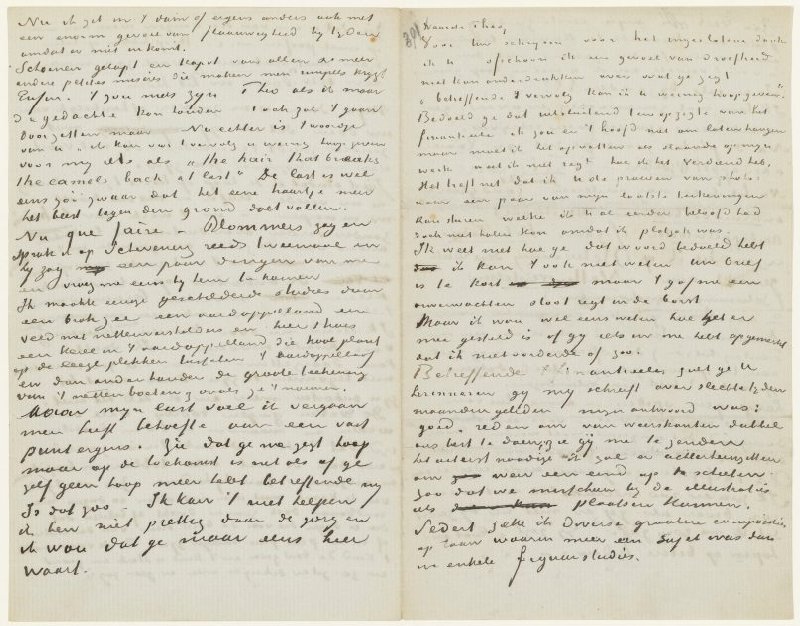 Nu ik zit in 't dam of ergens anders ook met
een enorm gevoel van flaauwigheid bij tijden
omdat er niet inkomt.
Schoenen gelapt en kapot van allen en meer
andere petites misères die maken men rimpels krijgt
Enfin. 't zou niets zijn Theo als ik maar
de gedachte kon houden toch zal 't gaan
doorzetten maar Nu echter is 't woordje
van u "ik kan van 't vervolg u weinig hoop geven
voor mij iets als "the hair that breaks
the camels back at last" De last is wel
eens zoo zwaar dat het eene haartje meer
het beest tegen den grond doet vallen.
Nu que faire – Blommers zag en
sprak ik op Scheveningen reeds tweemaal en
hij zag een paar dingen van me
en vroeg me eens bij hem te komen
Ik maakte eenige geschilderde studies daar
een brok zee een aardappelland een
veld met nettenverstelsters en hier thuis
een kerel in 't aardappelland die kool plant
op de leege plekken tusschen 't aardappelloof
en dan onder handen de groote teekening
van 't netten boeten zooals ze 't noemen.
Maar mijn lust voel ik vergaan
men heeft behoefte aan een vast
punt ergens. Zie dat ge me zegt hoop
maar op de toekomst is net als of ge
zelf geen hoop meer hebt betreffende mij
Is dat zoo. Ik kan 't niet helpen
ik ben niet prettig door de zorg en
ik wou dat ge maar eens hier
waart.
301
Waarde Theo,
Voor uw schrijven voor het ingeslotene dank
ik u ofschoon ik een gevoel van droefheid
niet kan onderdrukken over wat ge zegt
"betreffende 't vervolg kan ik u weinig hoop geven".
Bedoeld ge dat uitsluitend ten opzigte van het
financieele ik zou er 't hoofd niet om laten hangen
maar moet ik het opvatten als slaande op mijn
werk weet ik niet regt hoe ik het verdiend heb.
Het treft net dat ik u de proeven van photos
naar een paar van mijn laatste teekeningen
kan sturen welke ik u al eerder beloofd had
doch niet halen kon omdat ik platzak was.
Ik weet niet hoe ge dat woord bedoeld hebt
ik kan 't ook niet weten uw brief
is te kort maar 't gaf me een
onverwachten stoot regt in de borst
Maar ik wou wel eens weten hoe het er
mee gesteld is of gij iets in me hebt opgemerkt
dat ik niet vorderde of zoo.
Betreffende financieeles zult ge u
herinneren gij mij schreeft over slechte tijden
maanden geleden mijn antwoord was:
goed. reden om van weerskanten dubbel
ons best te doen, zie gij me te zenden
het uiterst noodige ik zal er achterheenzetten
om weer een eind op te schieten
zoo dat we misschien bij de illustraties
iets plaatsen kunnen.
Sedert zette ik diverse grootere composities
op touw waarin meer een sujet was dan
in enkele figuurstudies.